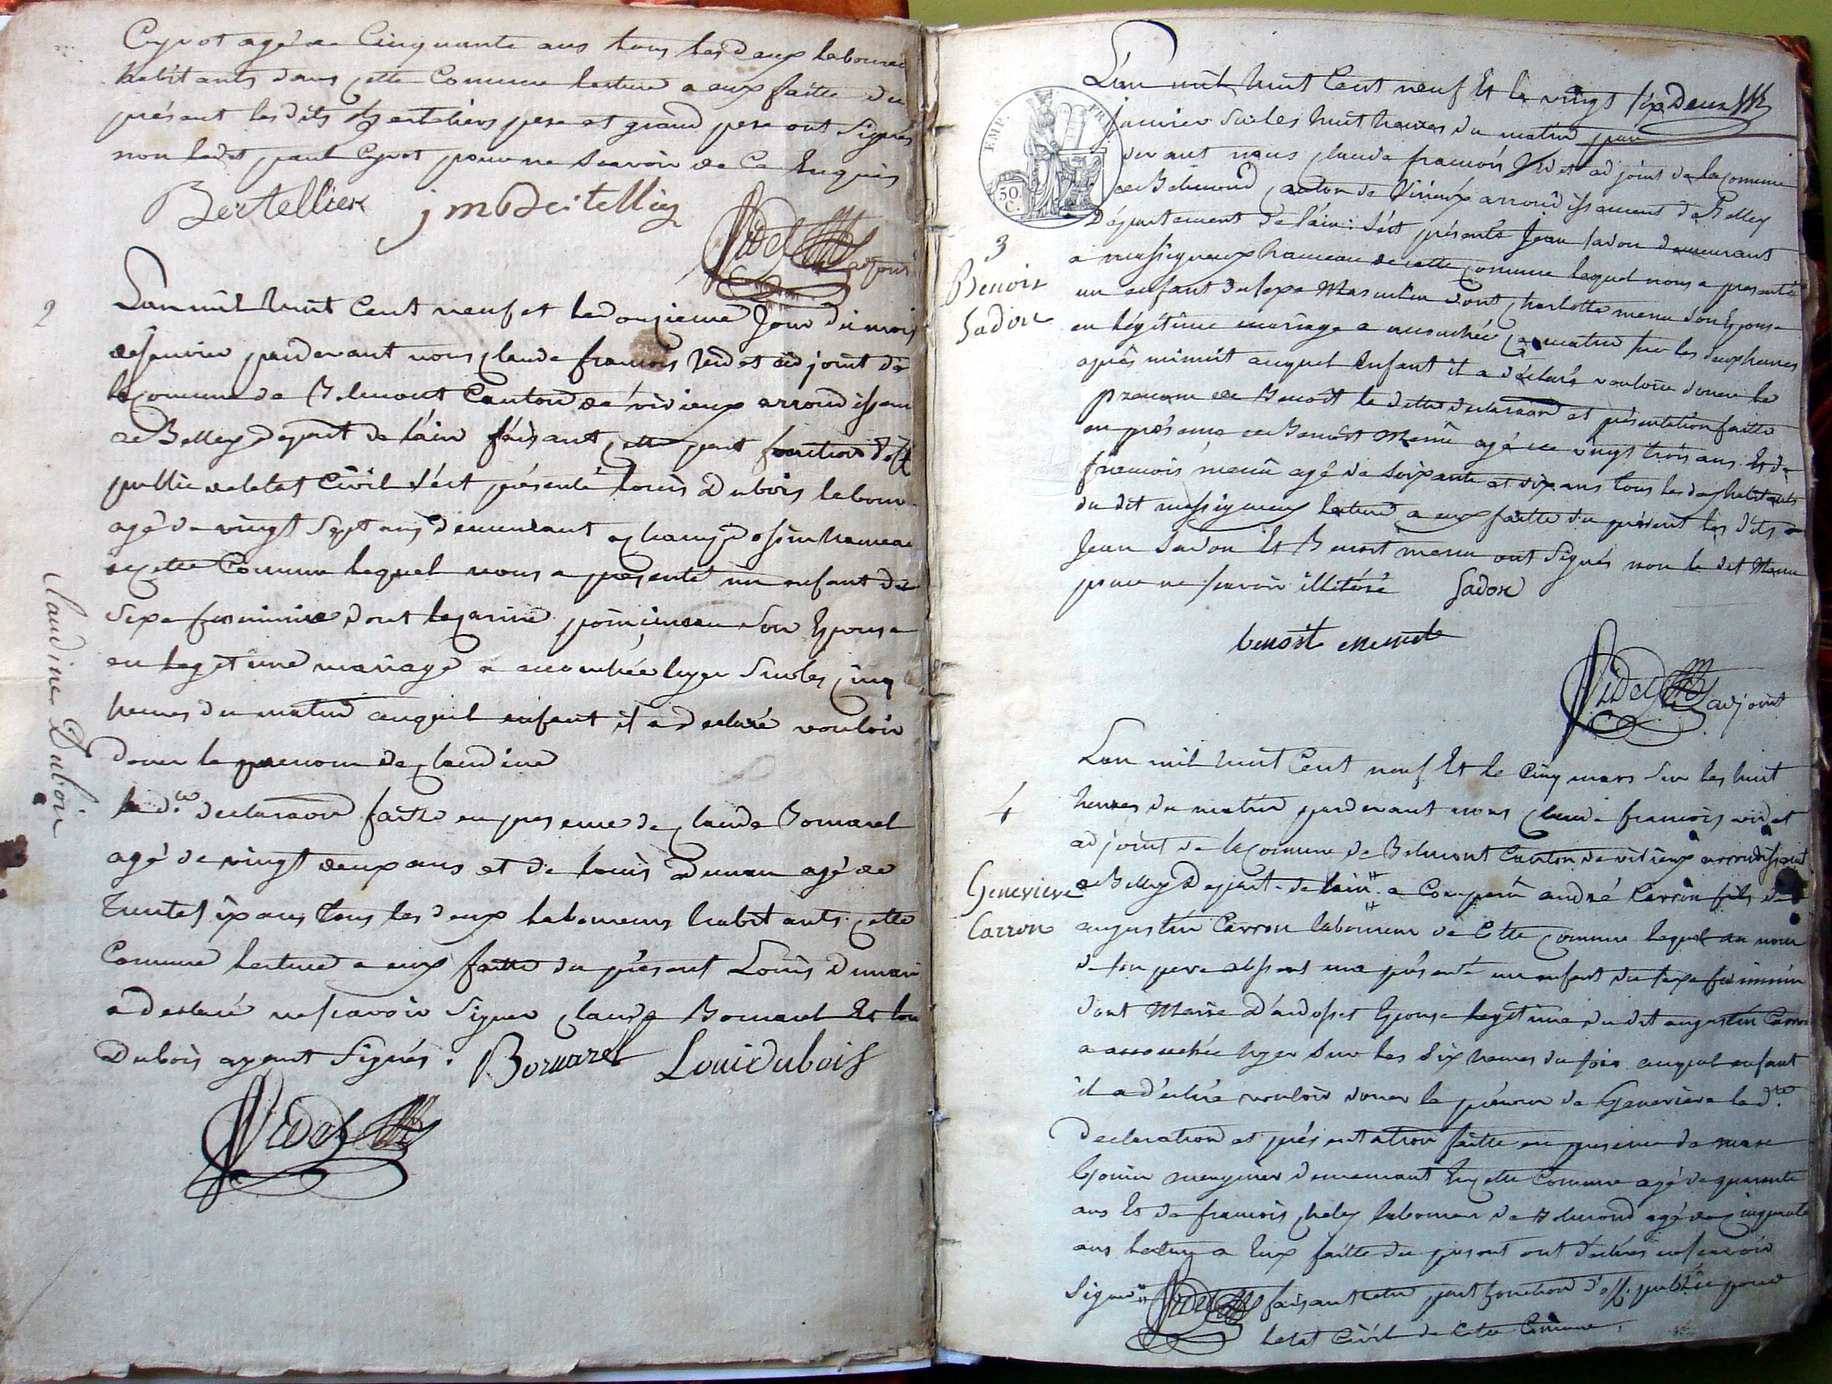 Cyvot agé de Cinquante ans tous les deux laboureu
habitants dans cette Commune lecture a eux faitte du
présent les dits Bertelier pere et grand pere ont Signés
non ledit paul Cyvot pour ne Scavoir de Ce Enquis
Bertellier j m Bertellier
Videt adjoint
2
L'an mil huit Cent neuf et le douzieme Jour du mois
de Janvier pardevant nous Claude francois Videt adjoint de
la Comune de Belmont Canton de virieux arrondissem
de Belley depart de l'ain faisant cette part fonctions d'off
public de letat Civil s'est présenté Louis Dubois laboure
agé de vingt Sept ans demeurant a hameau
de cette Commune lequel nous a presenté un enfant du
Sexe feminine dont son Epouse
en legitime mariage a accouchée hyer Sur les Cinq
heures du matin auquel enfant il a declaré vouloir
doner le prenom de Claudine
Claudine Dubois
la d.te declaraon faitte en presence de Claude Bornarel
agé de vingt deux ans et de Louis Dunan agé de
Trente six ans tous les deux laboureurs habitants cette
Comune lecture a eux faitte du présent Louis Dunan
a declaré ne scavoir Signer Claude Bornarel Et Lou
Dubois ayant Signés. Bornarel Louidubois
Videt
L'an mil huit Cent neuf Et le vingt six
EMP. FRA
50 C.
janvier Sur les huit heures du matin par
devant nous Claude francois Videt adjoint de la Comune
de Belmond Canton de Virieux arrondissement de Belley
Département de l'ain: s'est présenté Jean Sadon demeurant
3
Benoit
Sadon
a massigneux hameau de cette Comune lequel nous a presenté
un enfant du sexe Masculin dont Charlotte menu Son Epouse
en légitime mariage a accouchée Ce matin sur les deux heures
après minuit auquel Enfant il a déclaré vouloir doner le
prenom de Benoit la ditte declaraon et présentation faitte
en présence de Benoit Menu agé de vingt trois ans Et de
francois menu agé de Soixante et dix ans tous les deux habitants
du dit massigneux lecture a eux faitte du présent les dits
Jean Sadon Et Benoit menu ont Signés non le dit Menu
pour ne scavoir illitéré Sadon
benoit menut
Videt adjoint
L'an mil huit Cent neuf Et le Cinq mars Sur les huit
4
heures du matin pardevant nous Claude francois videt
adjoint de la Comune de Belmont Canton de virieux arrondissent
Genevieve
Carron
de Belley Depart. de lain a Comparu andré Carron fils de
augustin Carron laboureur de Cette Comune lequel au nom
de son pere absent ma présenté un enfant du sexe feminin
dont Marie D'ardosset Epouse legitime du dit augustin Carron
a accouchée hyer Sur les Six heures du soir auquel enfant
il a déclaré vouloir doner le prénom de Genevieve la d.te
Declaration et présentation faitte en presence de marc
Gonin meunier demeurant En cette Comune agé de quarente
ans Et de francois laboureur de Belmond agé de Cinquante
ans lecture a Eux faitte du present ont déclarés ne scavoir
Signer Videt faisant cette part fonction d'off. public pour
letat Civil de Cette Comune.